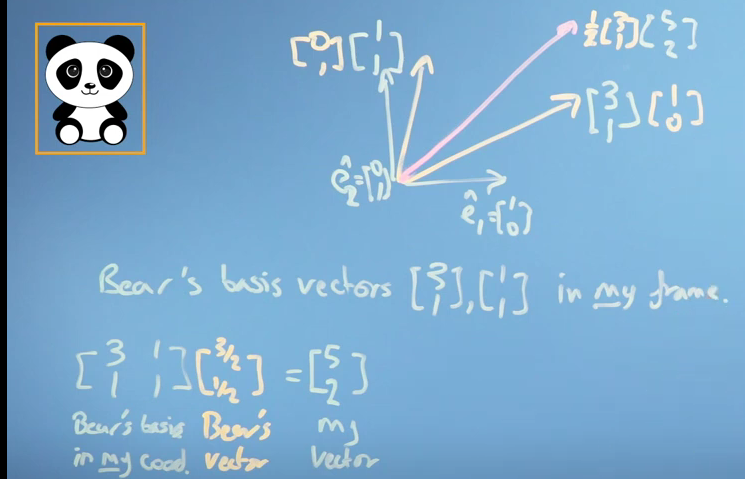 [0 1] [1 1]
1/2 [3 1] [5 2]
[3 1] [1 0]
ê2 = [0 1]
ê1 = [1 0]
Bear's basis vectors [3 1], [1 1] in my frame.
[3 1 1 1] [3/2 1/2] = [5 2]
Bear's basis Bear's my
in my coord. vector vector